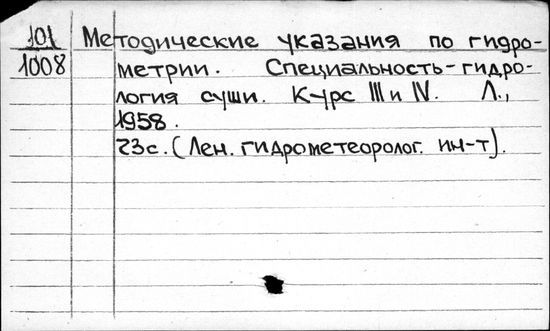 101 Методические указания по гидро-
1008 метрии. Специальность-гидро-
логия суши. Курс III и IV. Л.,
1958.
23с. (Лен. гидрометеоролог. ин-т).